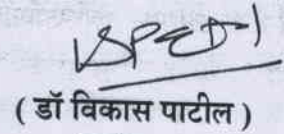 ( डॉ विकास पाटील )